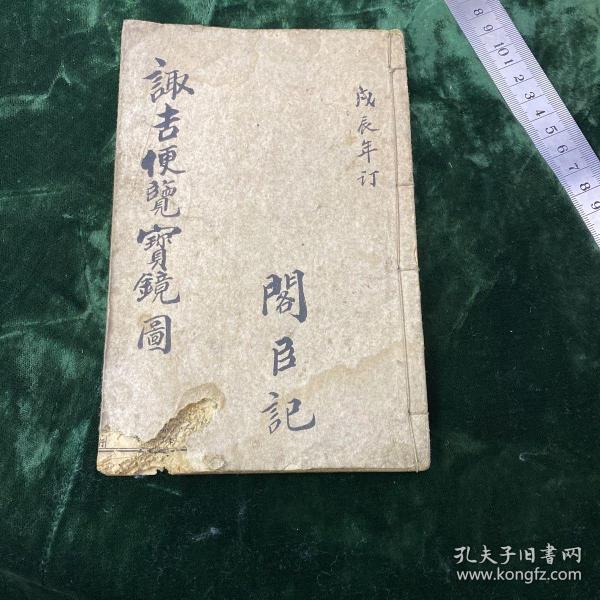 戊辰年订
閣臣記
諏吉便覽寳鏡圖
8 9 10 1 2 3 4 5 6 7 8 9
孔夫子旧書网
www.kongfz.com